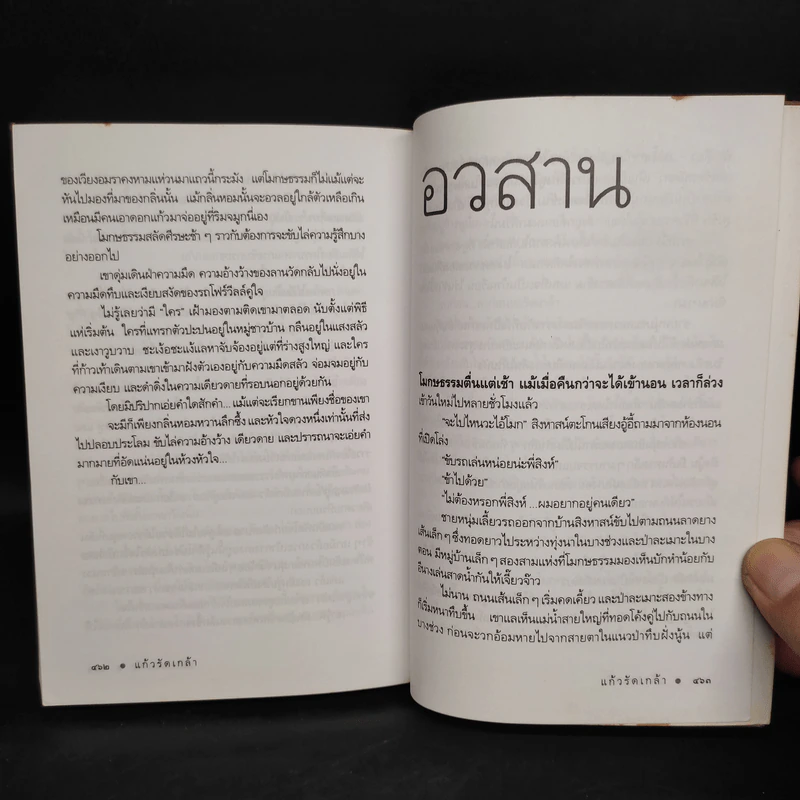 ของเวียงอมราคงหามแห่วนมาแถวนี้กระมัง แต่โมกษธรรมก็ไม่แม้แต่จะ
หันไปมองที่มาของกลิ่นนั้น แม้กลิ่นหอมนั้นจะอวลอยู่ใกล้ตัวเหลือเกิน
เหมือนมีคนเอาดอกแก้วมาจ่ออยู่ที่ริมจมูกนี่เอง
โมกษธรรมสลัดศีรษะช้า ๆ ราวกับต้องการจะขับไล่ความรู้สึกบาง
อย่างออกไป
เขาดุ่มเดินฝ่าความมืด ความอ้างว้างของลานวัดกลับไปนั่งอยู่ใน
ความมืดทึบและเงียบสงัดของรถโฟร์วีลล์คู่ใจ
ไม่รู้เลยว่ามี “ใคร” เฝ้ามองตามติดเขามาตลอด นับตั้งแต่พิธี
แห่เริ่มต้น ใครที่แทรกตัวปะปนอยู่ในหมู่ชาวบ้าน กลืนอยู่ในแสงสลัว
และเงาวูบวาบ ชะเง้อชะแง้แลหาจับจ้องอยู่แต่ที่ร่างสูงใหญ่ และใคร
ที่ก้าวเท้าเดินตามเขาเข้ามาฝังตัวเองอยู่กับความมืดสลัว จ่อมจมอยู่กับ
ความเงียบ และดำดิ่งในความเดียวดายที่รอบนอกอยู่ด้วยกัน
โดยมิปริปากเอ่ยคำใดสักคำ... แม้แต่จะเรียกขานเพียงชื่อของเขา
จะมีก็เพียงกลิ่นหอมหวานลึกซึ้ง และหัวใจดวงหนึ่งเท่านั้นที่ส่ง
ไปปลอบประโลม ขับไล่ความอ้างว้าง เดียวดาย และปรารถนาจะเอ่ยคำ
มากมายที่อัดแน่นอยู่ในห้วงหัวใจ...
กับเขา...
๔๖๒ ● แก้วรัดเกล้า
อวสาน
โมกษธรรมตื่นแต่เช้า แม้เมื่อคืนกว่าจะได้เข้านอน เวลาก็ล่วง
เข้าวันใหม่ไปหลายชั่วโมงแล้ว
“จะไปไหนวะไอ้โมก” สิงหาสน์ตะโกนเสียงอู้อี้ถามมาจากห้องนอน
ที่เปิดโล่ง
“ขับรถเล่นหน่อยน่ะพี่สิงห์”
“ข้าไปด้วย”
“ไม่ต้องหรอกพี่สิงห์ ...ผมอยากอยู่คนเดียว”
ชายหนุ่มเลี้ยวรถออกจากบ้านสิงหาสน์ขับไปตามถนนลาดยาง
เส้นเล็ก ๆ ซึ่งทอดยาวไประหว่างทุ่งนาในบางช่วงและป่าละเมาะในบาง
ตอน มีหมู่บ้านเล็ก ๆ สองสามแห่งที่โมกษธรรมมองเห็นบักหำน้อยกับ
อีนางเล่นสาดน้ำกันให้เจี๊ยวจ๊าว
ไม่นาน ถนนเส้นเล็ก ๆ เริ่มคดเคี้ยว และป่าละเมาะสองข้างทาง
ก็เริ่มหนาทึบขึ้น เขาแลเห็นแม่น้ำสายใหญ่ที่ทอดโค้งคู่ไปกับถนนใน
บางช่วง ก่อนจะวกอ้อมหายไปจากสายตาในแนวป่าทึบฝั่งนู้น แต่
แก้วรัดเกล้า ● ๔๖๓